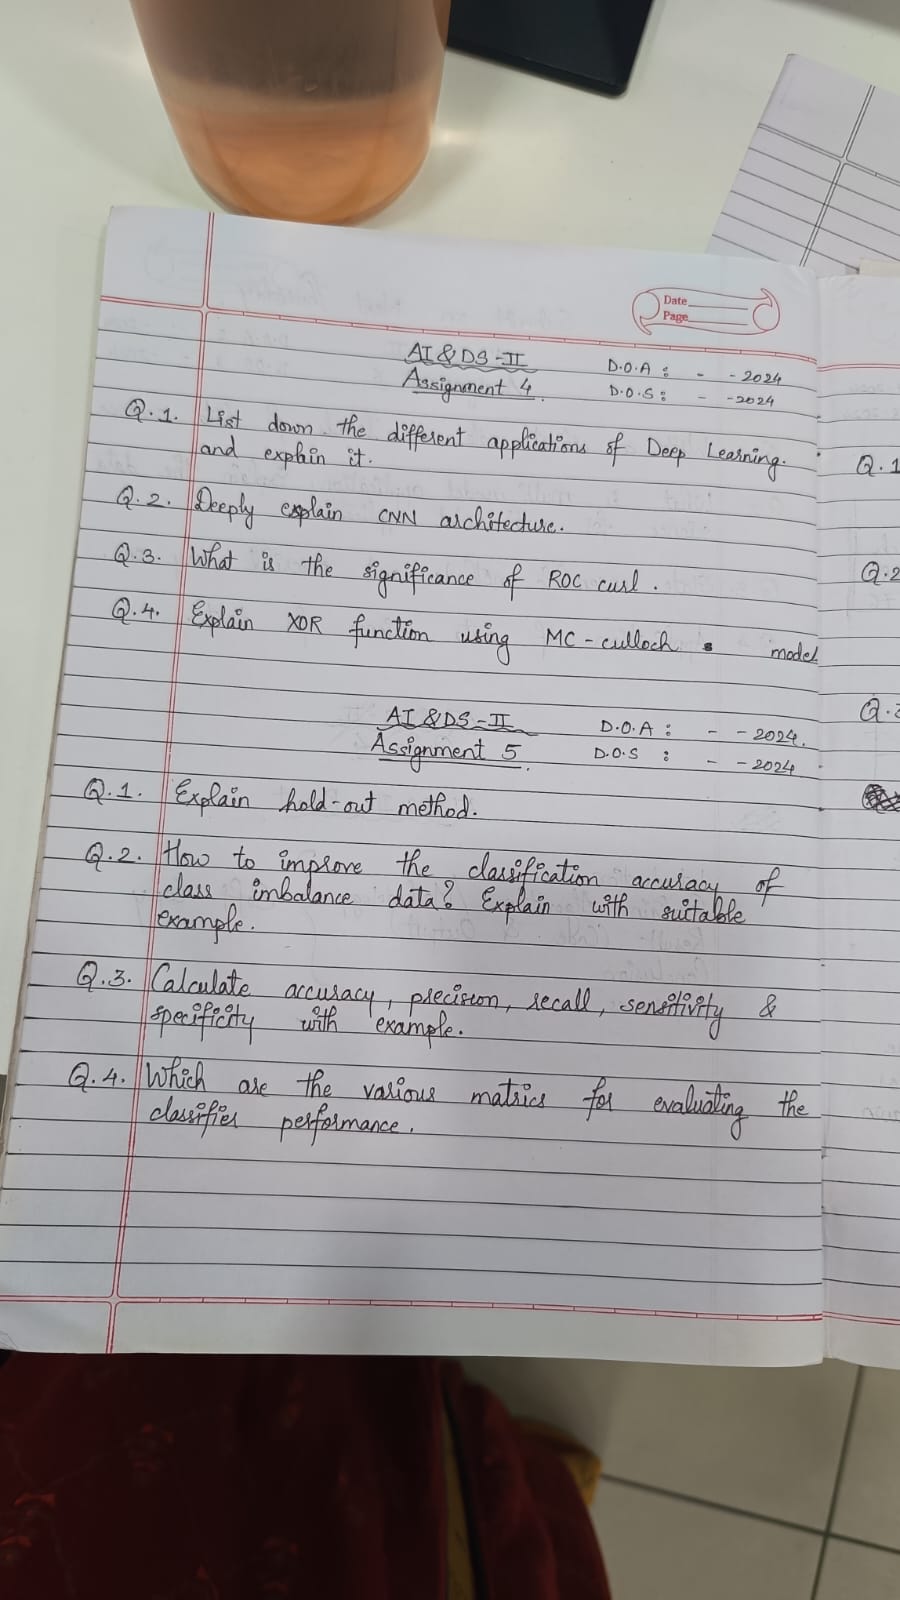 Date
Page
AI & DS - II D.O.A : - - 2024
Assignment 4. D.O.S : - - 2024
Q.1. List down the different applications of Deep Learning.
and explain it.
Q.2. Deeply explain CNN architecture.
Q.3. What is the significance of ROC curl.
Q.4. Explain XOR function using MC-culloch model
AI & DS - II D.O.A : - - 2024.
Assignment 5. D.O.S : - - 2024
Q.1. Explain hold-out method.
Q.2. How to improve the classification accuracy of
class imbalance data? Explain with suitable
example.
Q.3. Calculate accuracy, precision, recall, sensitivity &
specificity with example.
Q.4. Which are the various matrics for evaluating the
classifier performance.
Q.1
Q.2
Q.